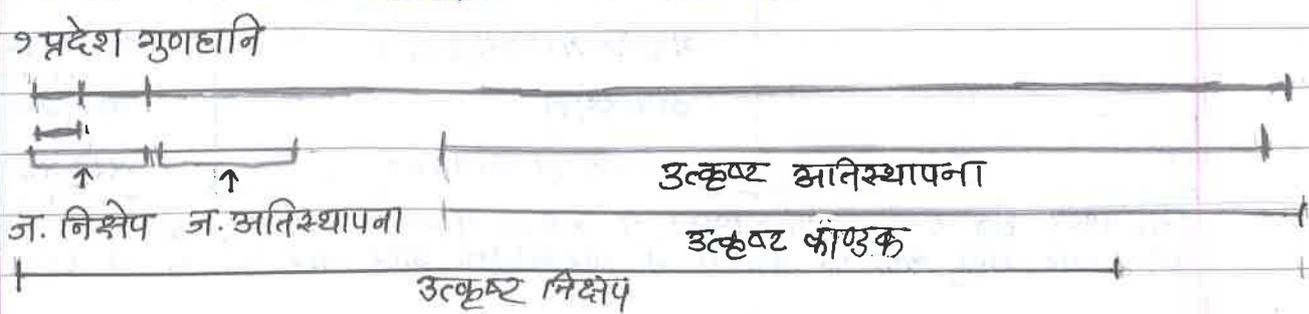 १ प्रदेश गुणहानि
उत्कृष्ट अतिस्थापना
ज. निक्षेप ज. अतिस्थापना
उत्कृष्ट काण्डक
उत्कृष्ट निक्षेप